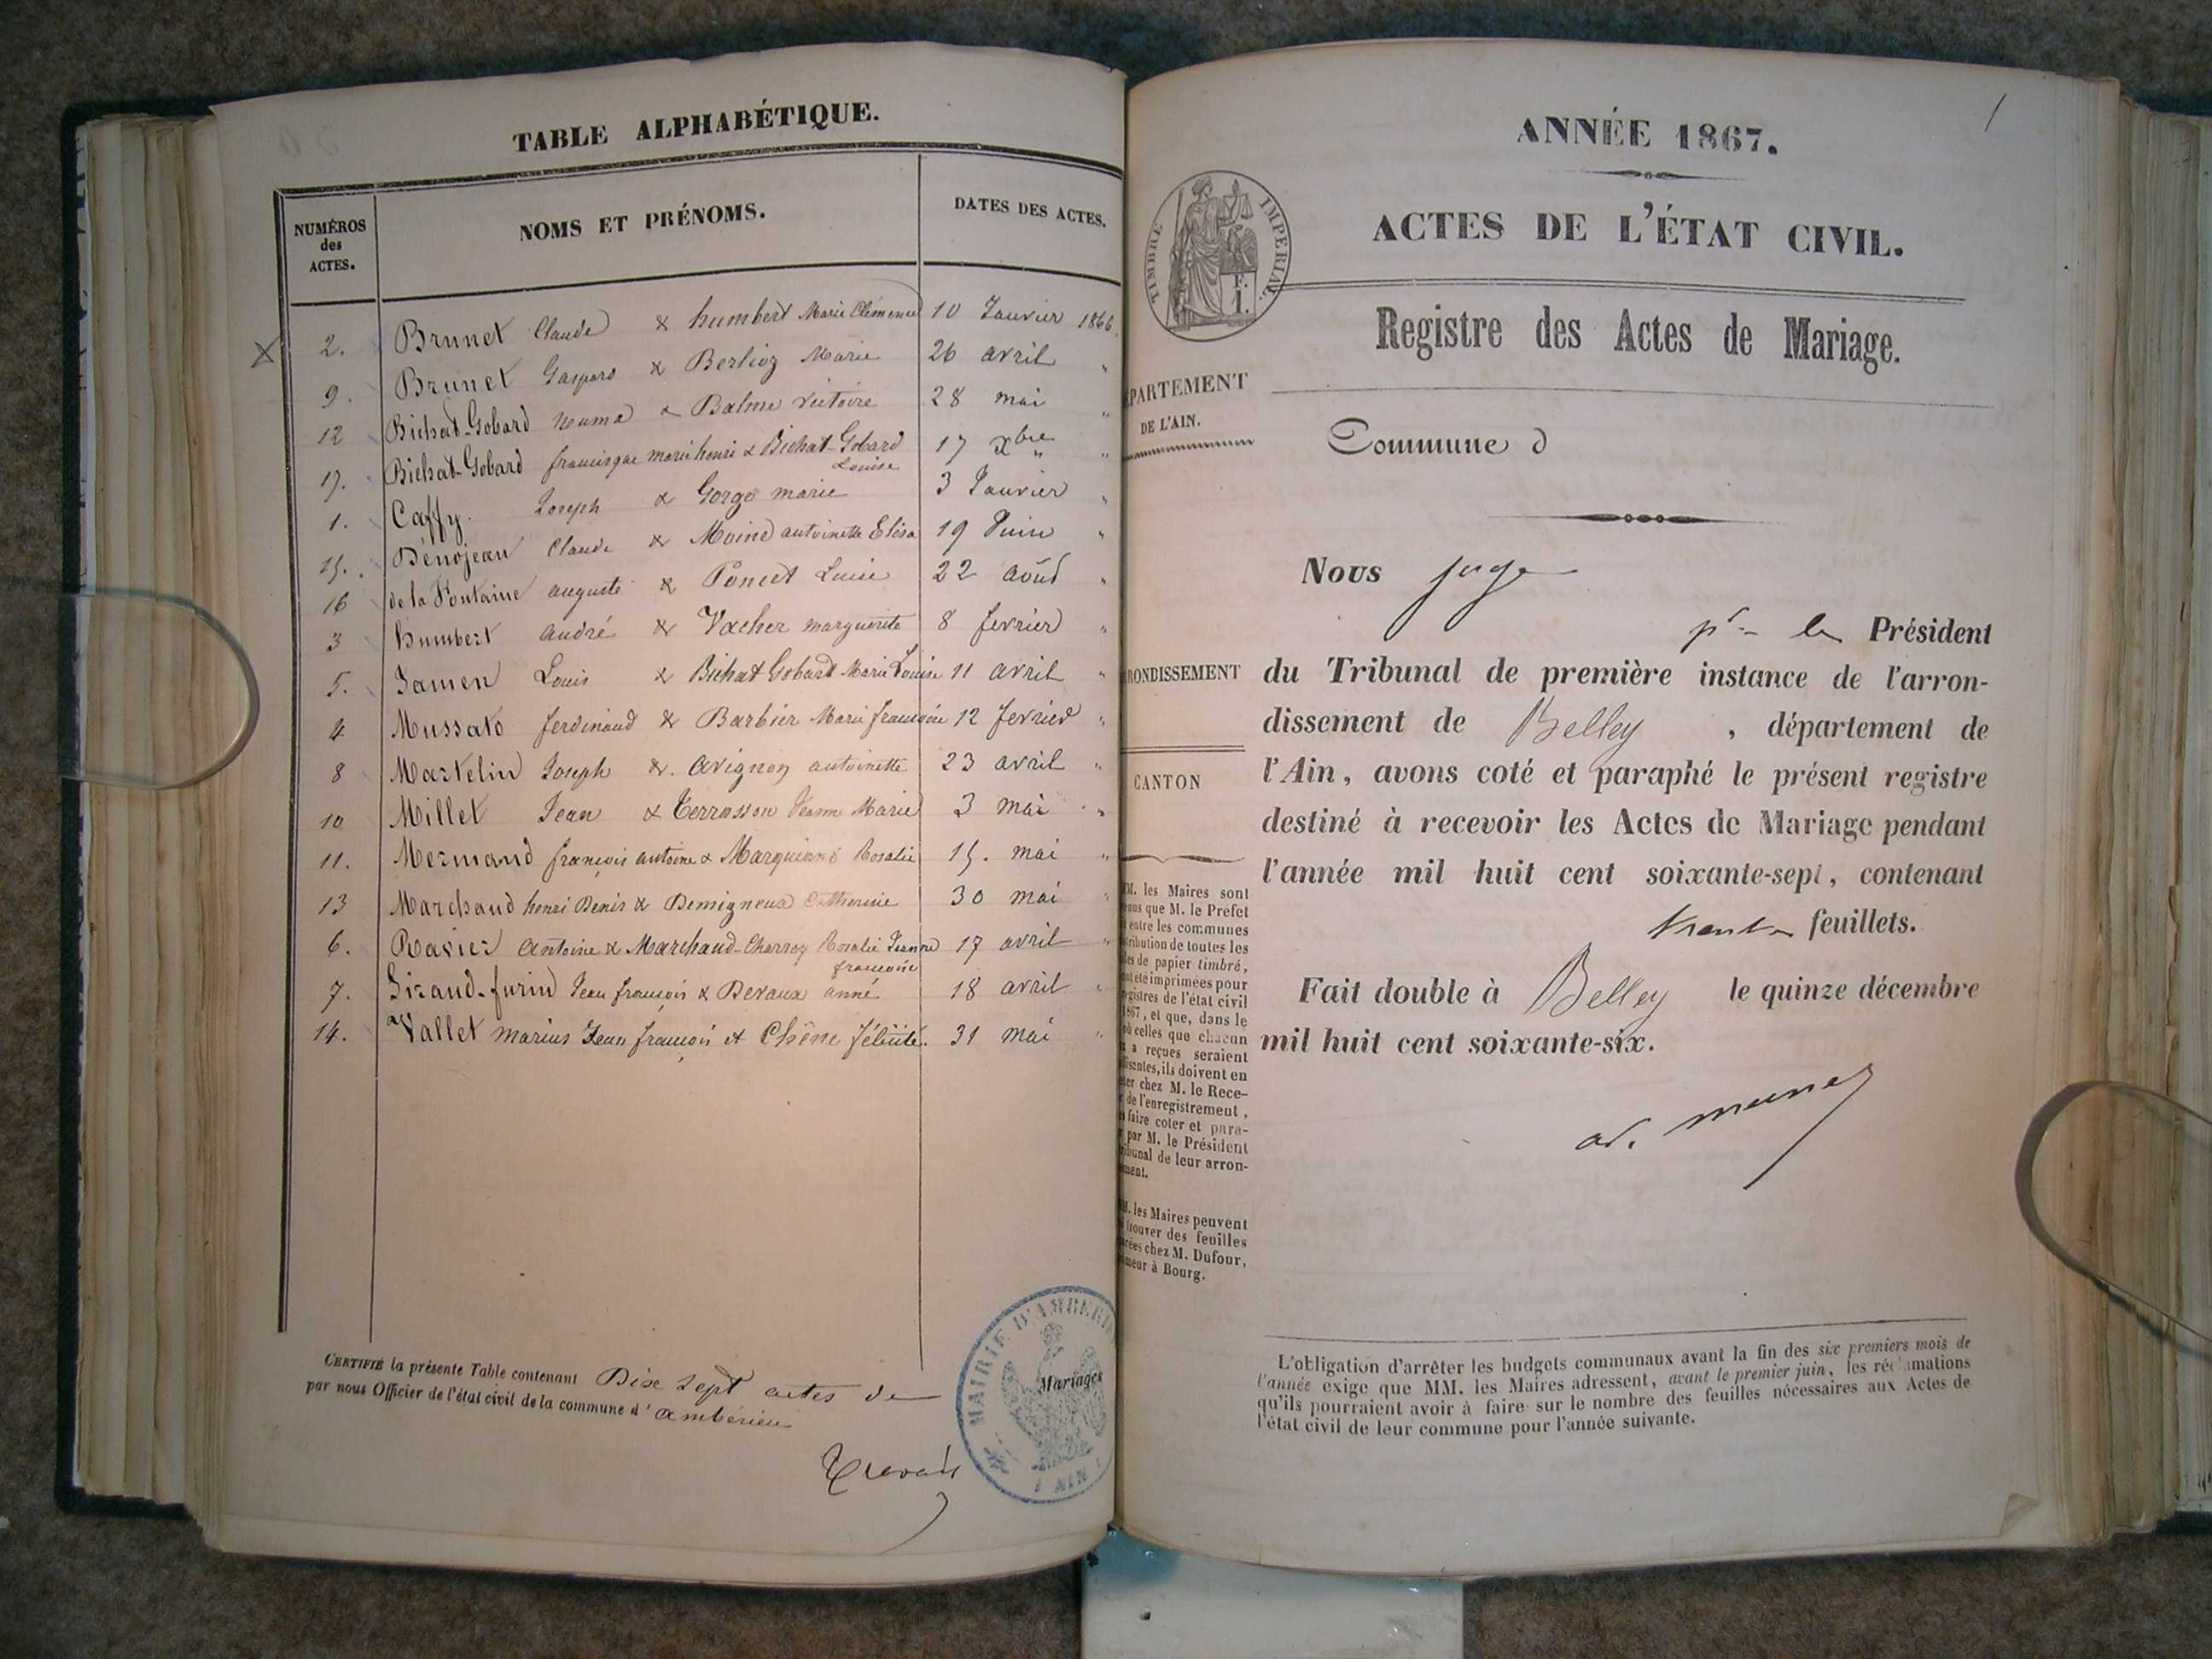 TABLE ALPHABÉTIQUE.
NUMÉROS des ACTES.
NOMS ET PRÉNOMS.
DATES DES ACTES.
2. Brunet Claude & humbert Marie Clémence 10 Janvier 1866
9. Brunet Gaspard & Berlioz Marie 26 avril "
12 Bichat-Gobard Numa & Balme Victoire 28 mai "
17. Bichat-Gobard francisque marie henri & Bichat-Gobard Louise 17 Xbre "
1. Caffy Joseph & Gorge marie 3 Janvier "
15. Dénojean Claude & Moine antoinette Elisa 19 Juin "
16 de la Fontaine auguste & Poncet Louise 22 août "
3 humbert andré & Vacher marguerite 8 fevrier "
5. Jamen Louis & Bichat Gobard Marie Louise 11 avril "
4 Mussato ferdinand & Barbier Marie françoise 12 fevrier "
8 Martelin Joseph &. avignon antoinette 23 avril "
10 Millet Jean & Terrasson Jeanne Marie 3 mai "
11. Mermand françois antoine & Rosalie 15. mai "
13 Marchand henri Denis & Demigneux Catherine 30 mai "
6. Ravier Antoine & Marchand-Charroy Rosalie Jeanne françoise 17 avril "
7. Giraud-furin Jean françois & Devaux anne 18 avril "
14. Vallet marius Jean françois et Chêne félicité. 31 mai "
CERTIFIÉ la présente Table contenant Dix sept actes de
par nous Officier de l'état civil de la commune d' ambérieu
MAIRIE D'AMBERI
AIN
Mariages
1
ANNÉE 1867.
ACTES DE L'ÉTAT CIVIL.
TIMBRE IMPERIAL.
F. 1.
Registre des Actes de Mariage.
PARTEMENT
DE L'AIN.
Commune d
Nous juge
pr le Président
RONDISSEMENT
du Tribunal de première instance de l'arron-
dissement de Belley , département de
CANTON
l'Ain, avons coté et paraphé le présent registre
destiné à recevoir les Actes de Mariage pendant
l'année mil huit cent soixante-sept, contenant
trente feuillets.
Fait double à Belley le quinze décembre
mil huit cent soixante-six.
M. les Maires sont
nus que M. le Préfet
entre les communes
tribution de toutes les
les de papier timbré,
ont été imprimées pour
gistres de l'état civil
1867, et que, dans le
où celles que chacun
a reçues seraient
fisantes, ils doivent en
ter chez M. le Rece-
de l'enregistrement,
faire coter et para-
par M. le Président
ribunal de leur arron-
ment.
M. les Maires peuvent
trouver des feuilles
rées chez M. Dufour,
meur à Bourg.
L'obligation d'arrêter les budgets communaux avant la fin des six premiers mois de
l'année exige que MM. les Maires adressent, avant le premier juin, les réclamations
qu'ils pourraient avoir à faire sur le nombre des feuilles nécessaires aux Actes de
l'état civil de leur commune pour l'année suivante.